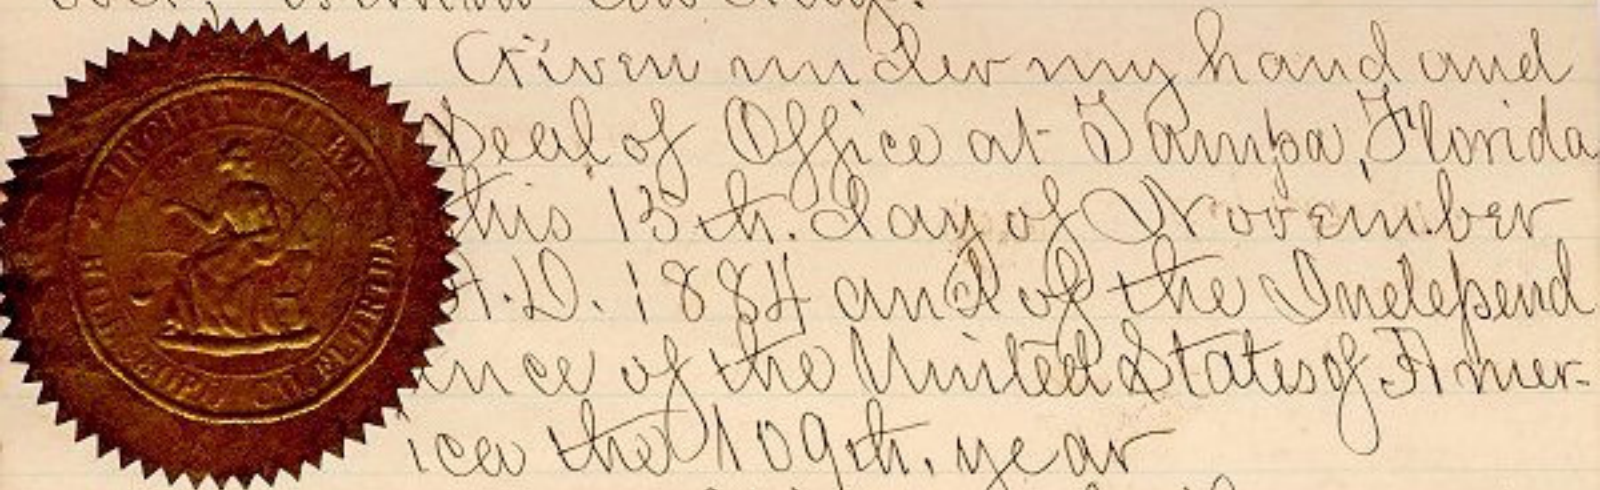 Given under my hand and
Seal of Office at Tampa, Florida
this 13th. day of November
A.D. 1884 and of the Independ
ence of the United States of Amer-
ica the 109th. year
CIRCUIT COURT
HILLSBOROUGH CO. FLORIDA